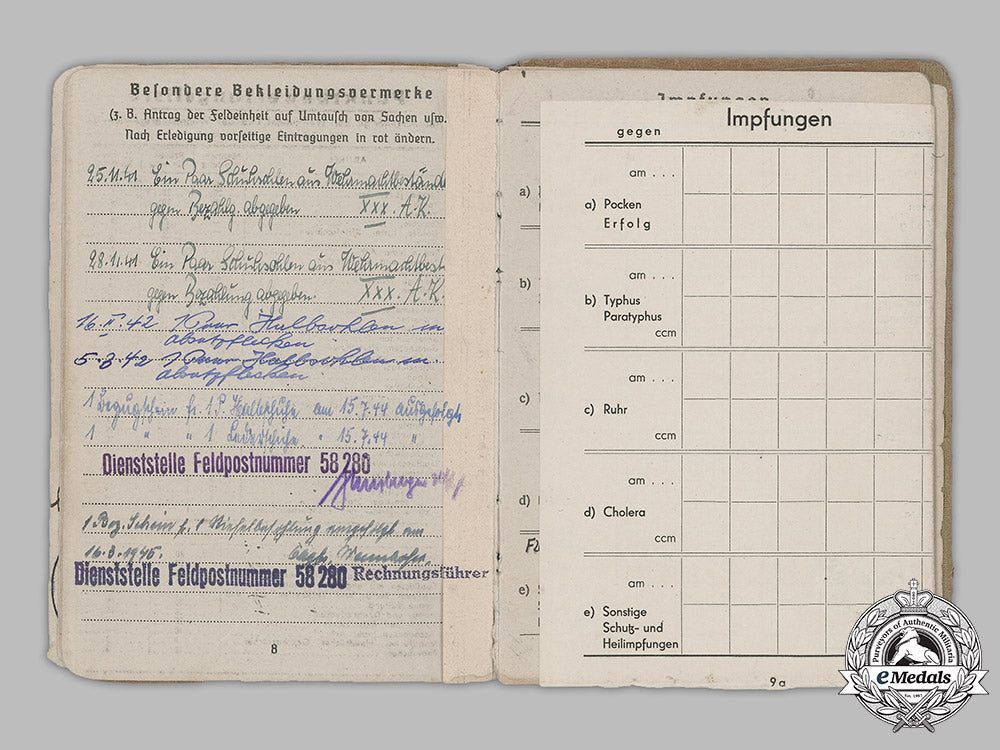 Besondere Bekleidungsvermerke
(z. B. Antrag der Feldeinheit auf Umtausch von Sachen usw.
Nach Erledigung vorseitige Eintragungen in rot ändern.
25.11.41 Ein Paar Schuhsohlen aus Wehrmachtbestände
gegen Bezahlg. abgegeben XXX. A.K.
28.11.41 Ein Paar Schuhsohlen aus Wehrmachtbest
gegen Bezahlung abgegeben. XXX. A.K.
16.II.42 1 Paar Halbsohlen m
absatzflecken
5.8.42 1 Paar Halbsohlen m.
absatzflecken
1 Bezugschein für 1 P. am 15.7.44 ausgefolgt
1 " " 1 " 15.7.44 "
Dienststelle Feldpostnummer 58 280
1 Bez. Schein f. 1 am
16.3.1945.
Dienststelle Feldpostnummer 58 280 Rechnungsführer
8
Impfungen
a)
b)
c)
d)
e)
Impfungen
gegen
am . . .
a) Pocken
Erfolg
am . . .
b) Typhus
Paratyphus
ccm
am . . .
c) Ruhr
ccm
am . . .
d) Cholera
ccm
am . . .
e) Sonstige
Schutz- und
Heilimpfungen
9a
Purveyors of Authentic Militaria
eMedals
Est. 1967